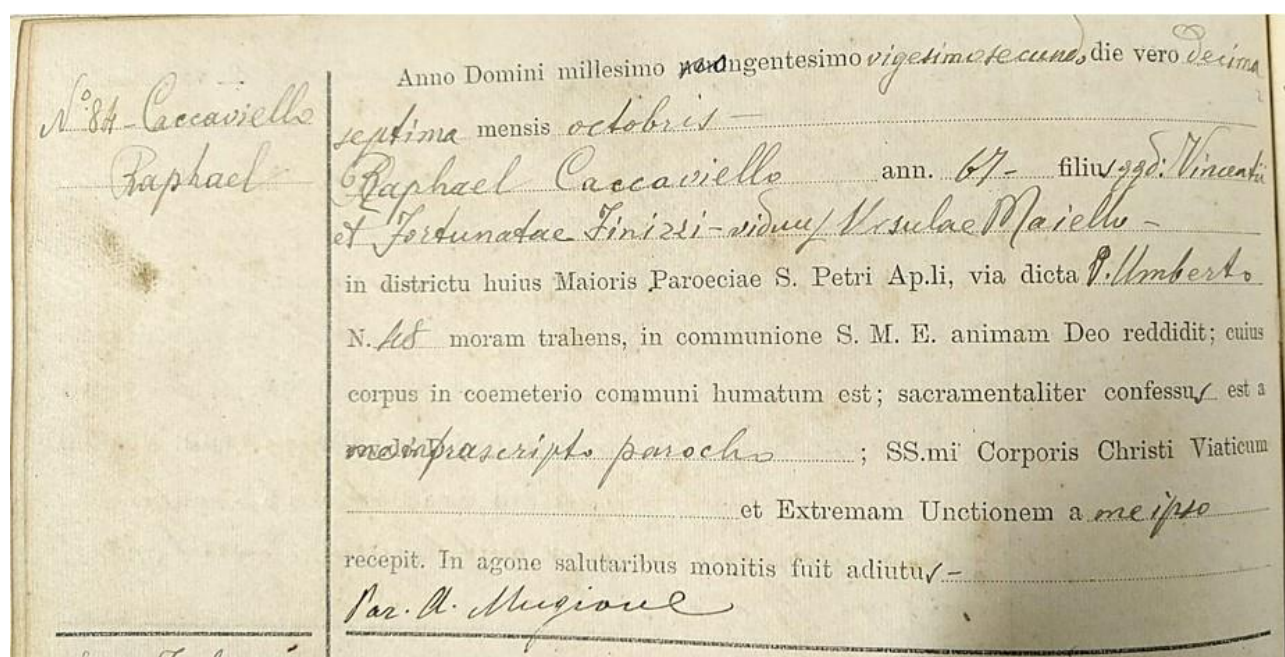 Nº 84 - Caccaviello
Raphael
Anno Domini millesimo nongentesimo vigesimosecundo, die vero decima
septima mensis octobris -
Raphael Caccaviello ann. 67 - filius qqd: Vincentii
et Fortunatae Finizzi - viduus Ursulae Maiello -
in districtu huius Maioris Paroeciae S. Petri Ap.li, via dicta P. Umberto
N. 48 moram trahens, in communione S. M. E. animam Deo reddidit; cuius
corpus in coemeterio communi humatum est; sacramentaliter confessus est a
me infrascripto parocho ; SS.mi Corporis Christi Viaticum
et Extremam Unctionem a me ipso
recepit. In agone salutaribus monitis fuit adiutus -
Par. A. Mugione